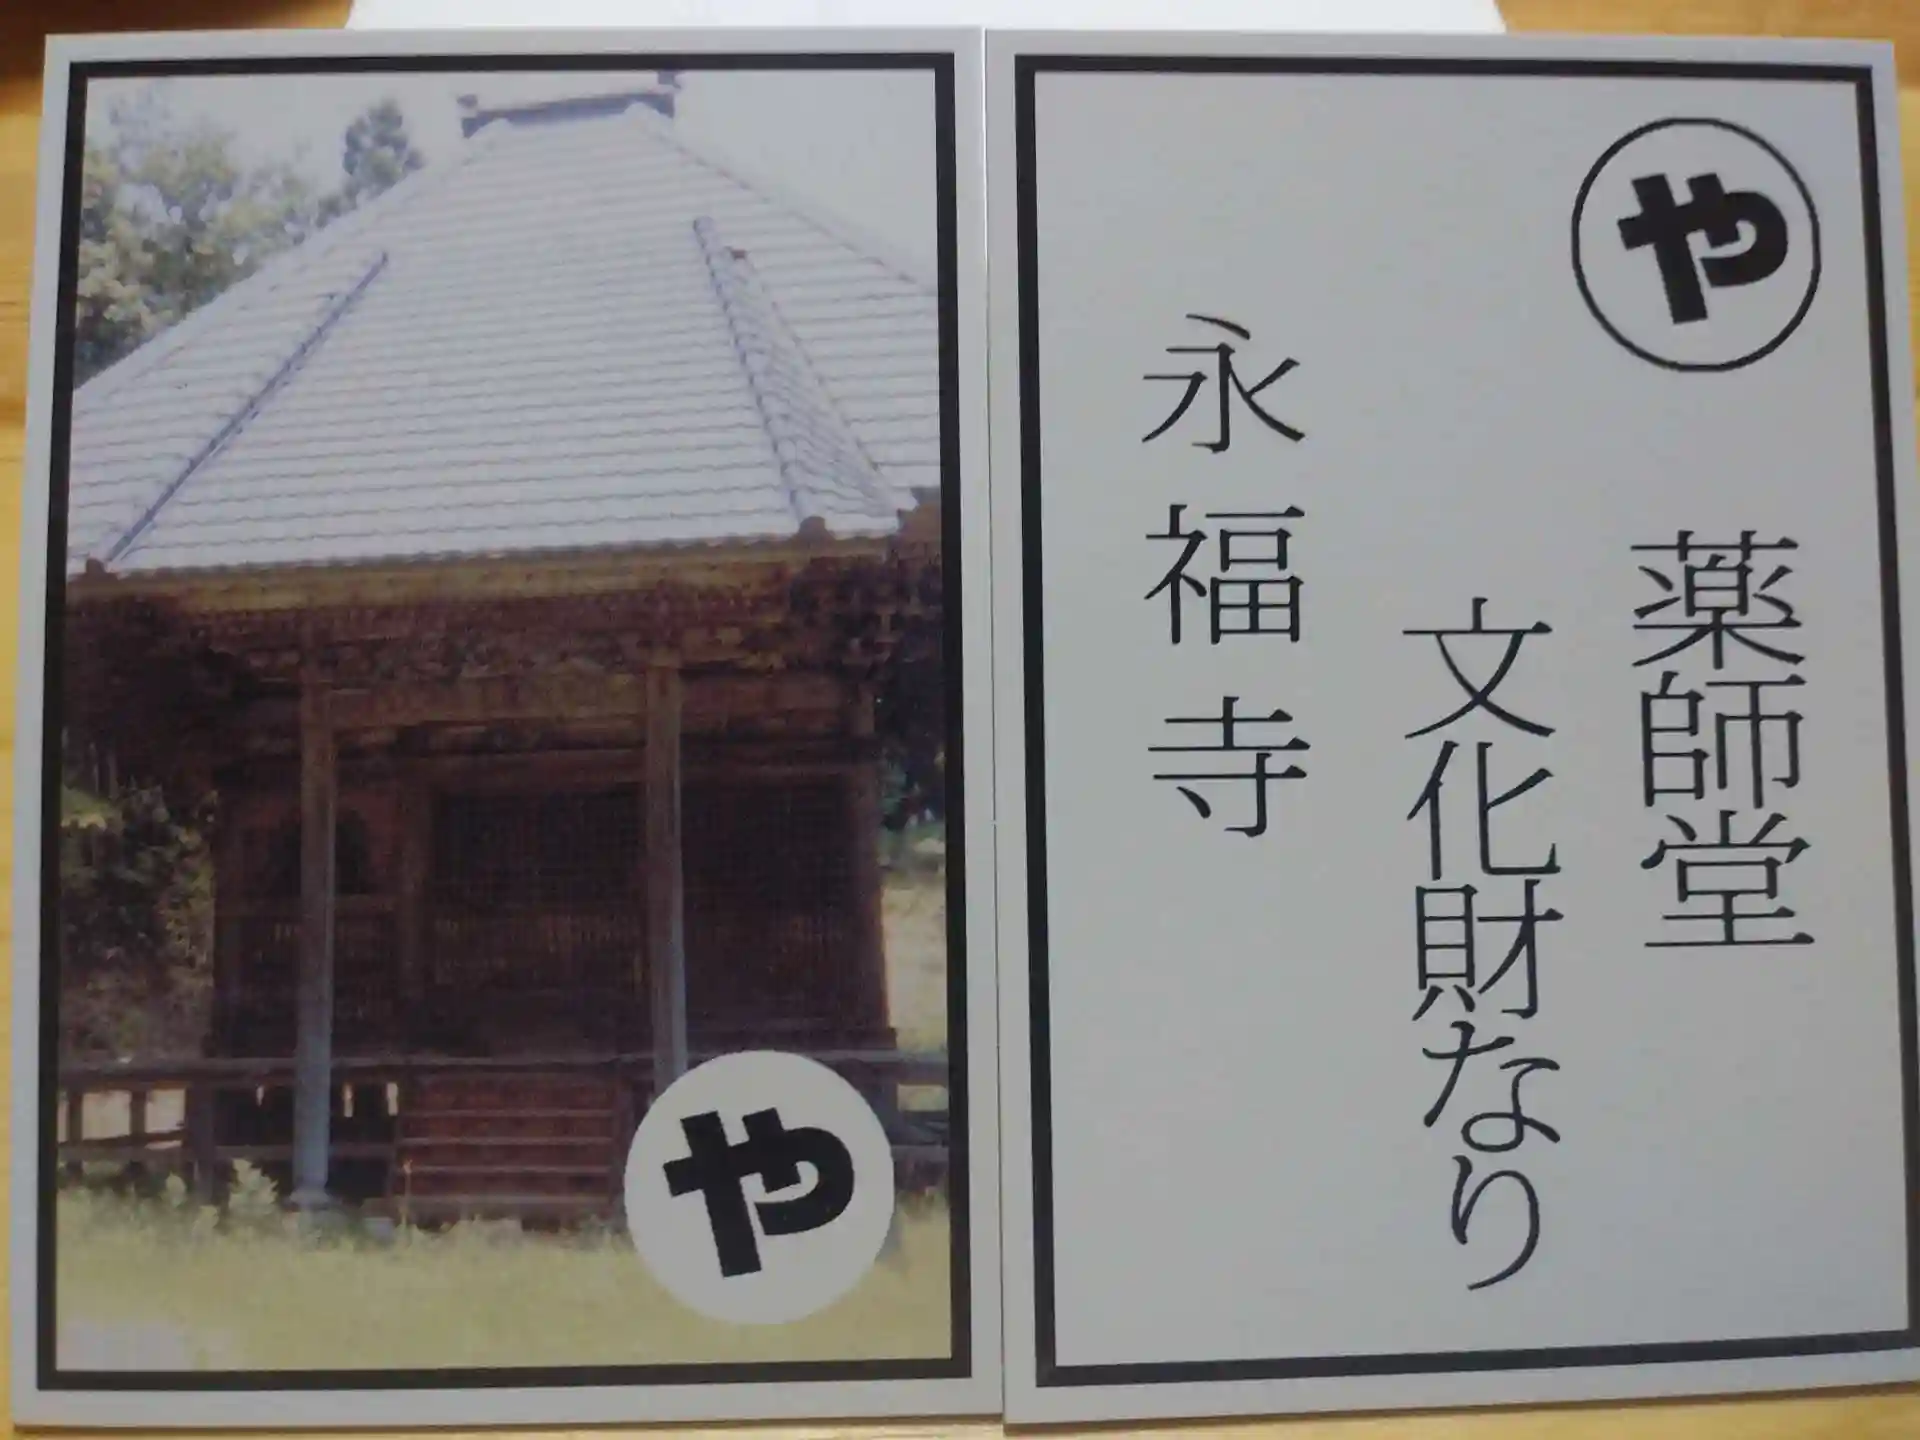 や
や
薬師堂
文化財なり
永福寺